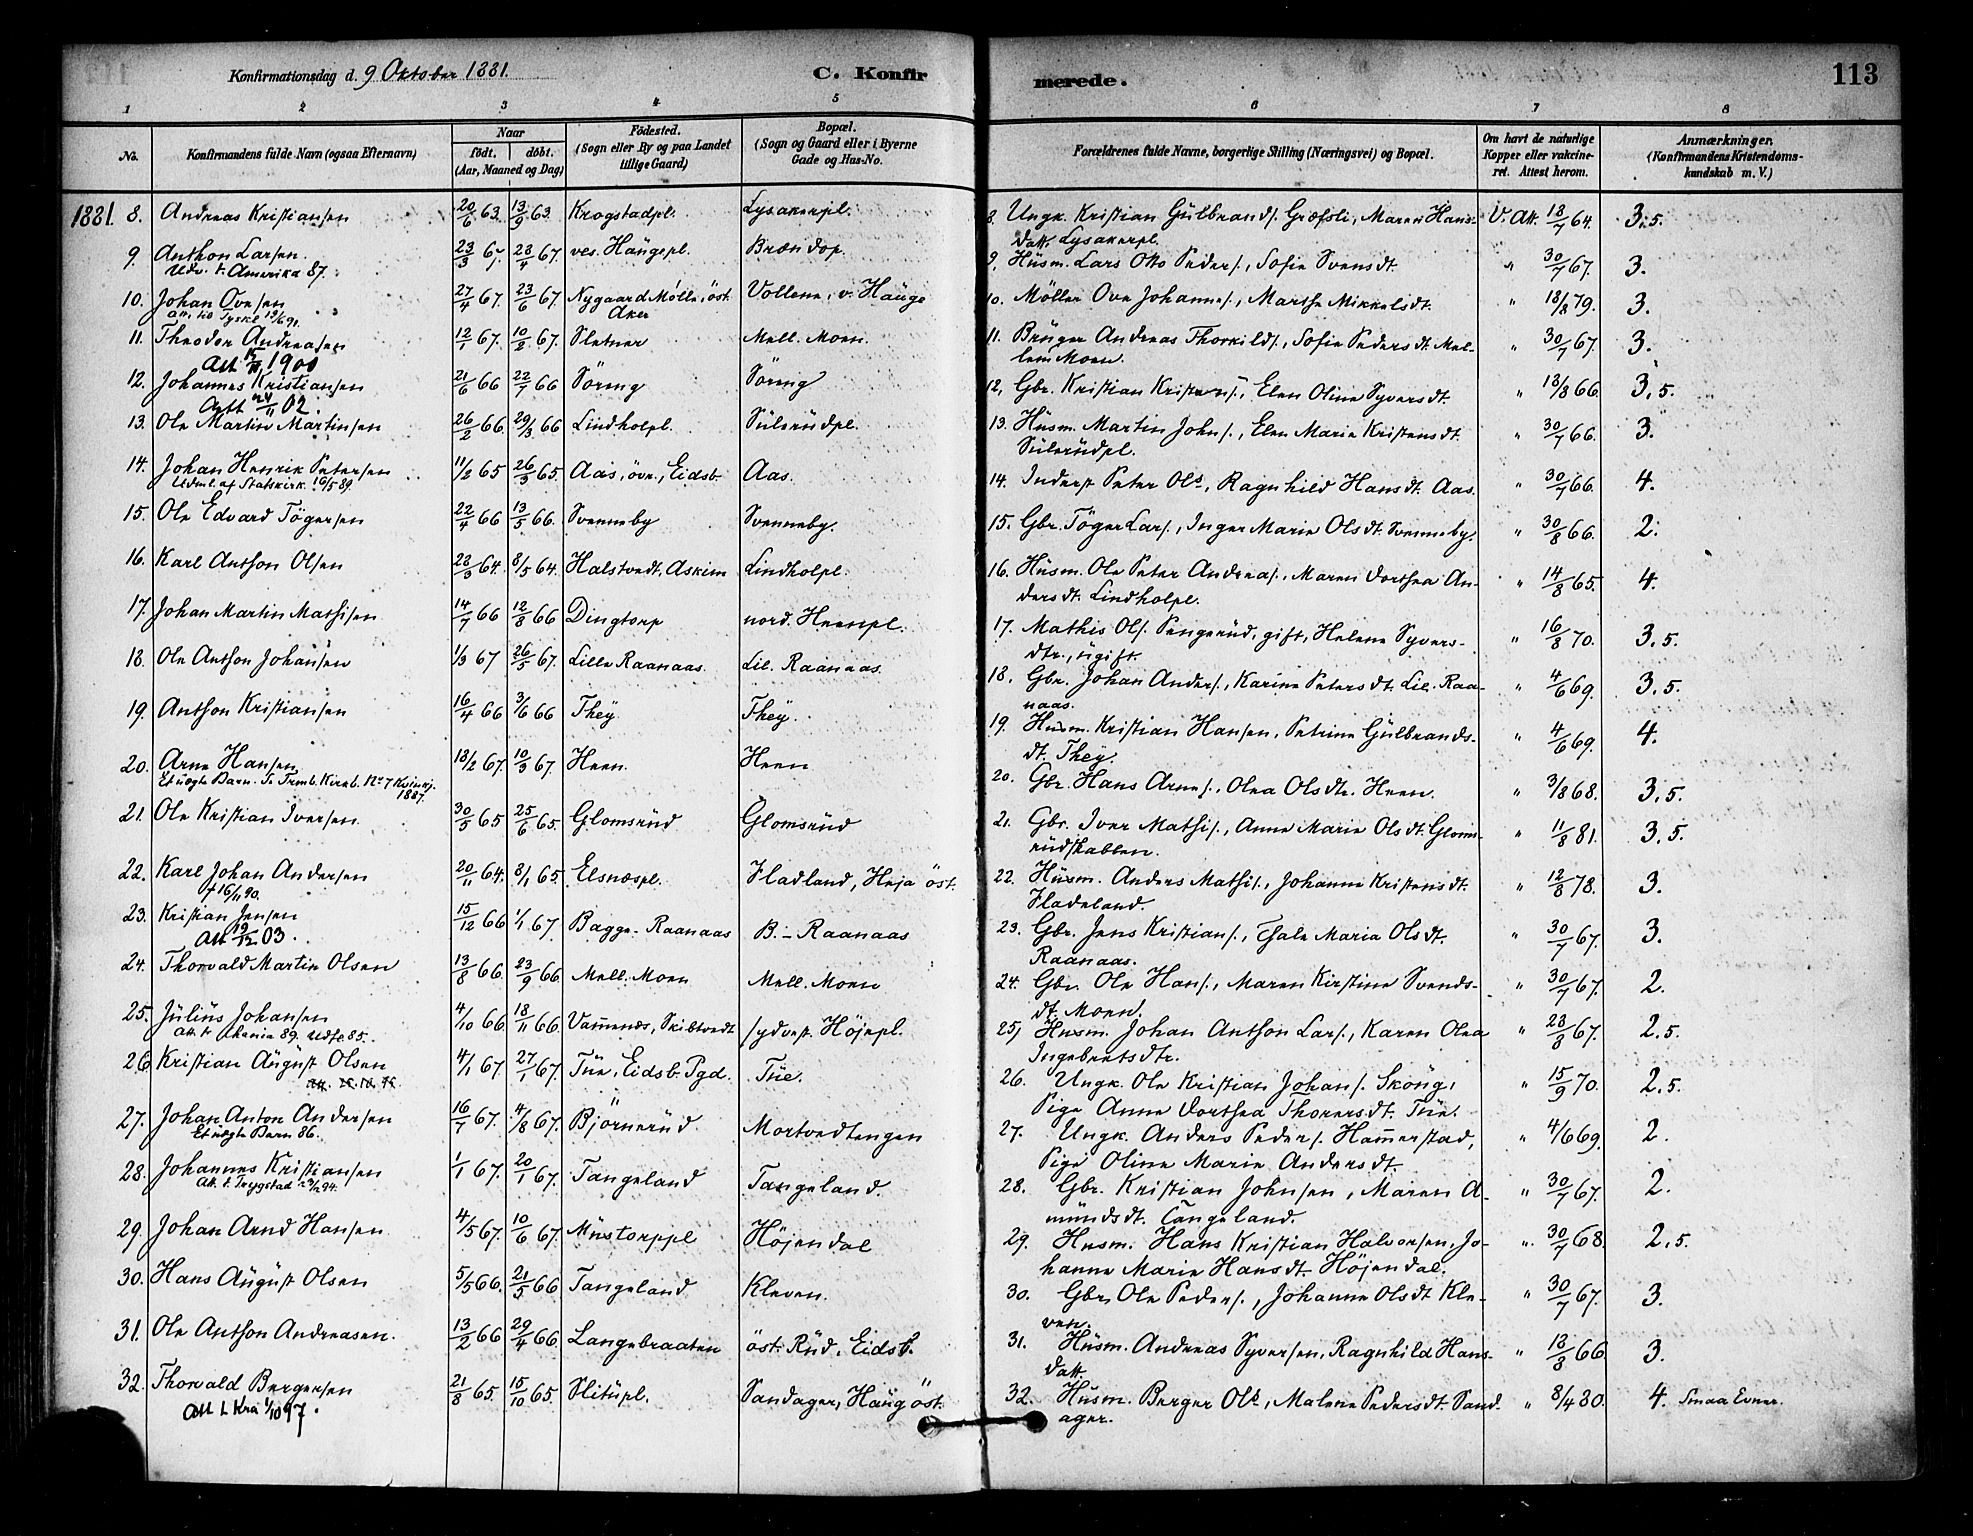 Konfirmationsdag d. 9 Oktober 1881.
C. Konfir
1 2 3 4 5
No.
Konfirmandens fulde Navn (ogsaa Efternavn)
Naar
født. døbt.
(Aar, Maaned og Dag)
Fødested.
(Sogn eller By og paa Landet
tillige Gaard)
Bopæl.
(Sogn og Gaard eller i Byerne
Gade og Hus-No.
1881. 8. Andreas Kristiansen 20/6 63. 13/9 63. Krogstadpl. Lysakerpl.
9. Anthon Larsen. 23/3 67. 28/4 67. ves. Haugepl. Brændop.
Udv. t. Amerika 87.
10. Johan Ovesen 27/4 67. 23/6 67. Nygaard Mölle, öst. Vollene, v. Hauge
att. til Tyskl 19/6 91. Aker
11. Theodor Andreasen 12/1 67. 10/2 67. Sletner Mell. Moen.
Att 1900
12. Johannes Kristiansen 21/6 66 22/7 66 Söreng Söreng
Att 24/11 02.
13. Ole Martin Martinsen 26/2 66 29/3 66 Lindholpl. Sulerudpl.
14. Johan Henrik Petersen 11/2 65 26/3 65. Aas, övr., Eidsb. Aas.
Udml. af Statskirk. 16/5 89.
15. Ole Edvard Tögersen 22/4 66 13/5 66. Svenneby Svenneby.
16. Karl Anthon Olsen 28/3 64. 8/5 64. Halstvedt, Askim Lindholpl.
17. Johan Martin Mathisen 14/7 66 12/8 66 Dingtorp nord. Heenpl.
18. Ole Anthon Johansen 1/3 67 26/5 67. Lille Raanaas. Lil. Raanaas.
19. Anthon Kristiansen 16/4 66 3/6 66 They They.
20. Arne Hansen 18/2 67. 10/3 67. Heen. Heen
Et uægte Barn. Se Trmb. Kirkb. No 7 Kvinkj.
1887.
21. Ole Kristian Iversen. 30/5 65 25/6 65. Glomsrud Glomsrud
22. Karl Johan Andersen 20/11 64. 8/1 65. Elsnæspl. Fladland, Heja öst.
† 16/11 90.
23. Kristian Jensen 15/12 66 1/1 67 Bagge-Raanaas B.- Raanaas
Att 19/12 03.
24. Thorvald Martin Olsen 13/8 66. 23/9 66 Mell. Moen Mell. Moen
25. Julius Johansen 4/10 66 18/11 66. Vamnæs, Skibtvedt sydvest. Höjepl.
Att. t. Chania 89. Udfl. 85.
26. Kristian August Olsen 4/1 67 27/1 67. Tue, Eidsb. Pgd. Tue.
27. Johan Anton Andersen 16/7 67. 4/8 67. Björnerud Mortvedtengen
Et uægte Barn 86.
28. Johannes Kristiansen 1/1 67. 20/1 67. Tangeland Tangeland.
Att. t. Trygstad 23/2 94.
29. Johan Arnd Hansen 4/5 67. 10/6 67. Mustorppl Höjendal
30. Hans August Olsen 5/5 66. 21/5 66 Tangeland Kleven.
31. Ole Anthon Andreasen. 13/2 66 29/4 66. Langebraaten öst. Rud, Eidsb.
32. Thorvald Bergersen 21/8 65. 15/10 65. Slitupl. Sandager, Haug öst.
Att t. Kra 1/10 97.
merede. 113
6 7 8
Forældrenes fulde Navne, borgerlige Stilling (Næringsvei) og Bopæl.
Om havt de naturlige
Kopper eller vakcine-
ret. Attest herom.
Anmærkninger.
(Konfirmandens Kristendoms-
kundskab m. V.)
8. Ungk. Kristian Gulbrands. Græfsli, Maren Hans- V. Att. 18/7 64. 3.5.
datt. Lysakerpl.
9. Husm. Lars Otto Peders., Sofie Svensdt. " 30/7 67. 3.
10. Møller Ove Johannes., Marthe Mikkelsdt. " 18/8 79. 3.
11. Bruger Andreas Thorkilds., Sofie Pedersdt. Mel- " 30/7 67. 3.
lem Moen.
12. Gbr. Kristian Kristens., Elen Oline Syversdt. " 18/8 66. 3.5.
13. Husm. Martin Johns., Elen Marie Kristensdt. " 30/7 66. 3.
Sulerudpl.
14. Inderst Peter Ols., Ragnhild Hansdt. Aas. " 30/7 66. 4.
15. Gbr. Töger Lars., Inger Marie Olsdt. Svenneby. " 30/8 66. 2.
16. Husm. Ole Peter Andreas., Maren Dorthea An- " 14/8 65. 4.
dersdt. Lindholpl.
17. Mathis Ols. Pengerud, gift, Helene Syvers- " 16/8 70. 3.5.
dtr., ugift.
18. Gbr. Johan Anders., Karine Petersdt. Lil. Raa- " 4/6 69. 3.5.
naas.
19. Husm. Kristian Hansen, Petrine Gulbrands- " 4/6 69. 4.
dt. They.
20. Gbr. Hans Arnes., Olea Olsdtr. Heen. " 3/8 68. 3.5.
21. Gbr. Iver Mathis., Anne Marie Olsdt. Gloms- " 11/8 81. 3.5.
rudstabben.
22. Husm. Anders Mathis., Johanne Kristensdt. " 12/8 78. 3.
Fladeland.
23. Gbr. Jens Kristians., Thale Maria Olsdt. " 30/7 67. 3.
Raanaas.
24. Gbr. Ole Hans., Maren Kirstine Svends- " 30/7 67. 2.
dt. Moen.
25) Husm. Johan Anthon Lars., Karen Olea " 28/8 67. 2.5.
Ingebretsdtr.
26. Ungk. Ole Kristian Johans. Skoug, " 15/9 70. 2.5.
Pige Anne Dorthea Thorersdt. Tue.
27. Ungk. Anders Peders. Hammerstad, " 4/6 69. 2.
Pige Oline Marie Andersdt.
28. Gbr. Kristian Johnsen, Maren A- " 30/7 67. 2.
mundsdt. Tangeland.
29. Husm. Hans Kristian Halvorsen, Jo- " 30/7 68. 2.5.
hanne Marie Hansdt. Höjendal.
30. Gbr. Ole Peders., Johanne Olsdt Kle- " 30/7 67. 3.
ven.
31. Husm. Andreas Syversen, Ragnhild Hans- " 18/8 66 3.
datt.
32. Husm. Berger Ols., Malene Pedersdt. Sand- " 8/4 80. 4. Smaa Evner.
ager.